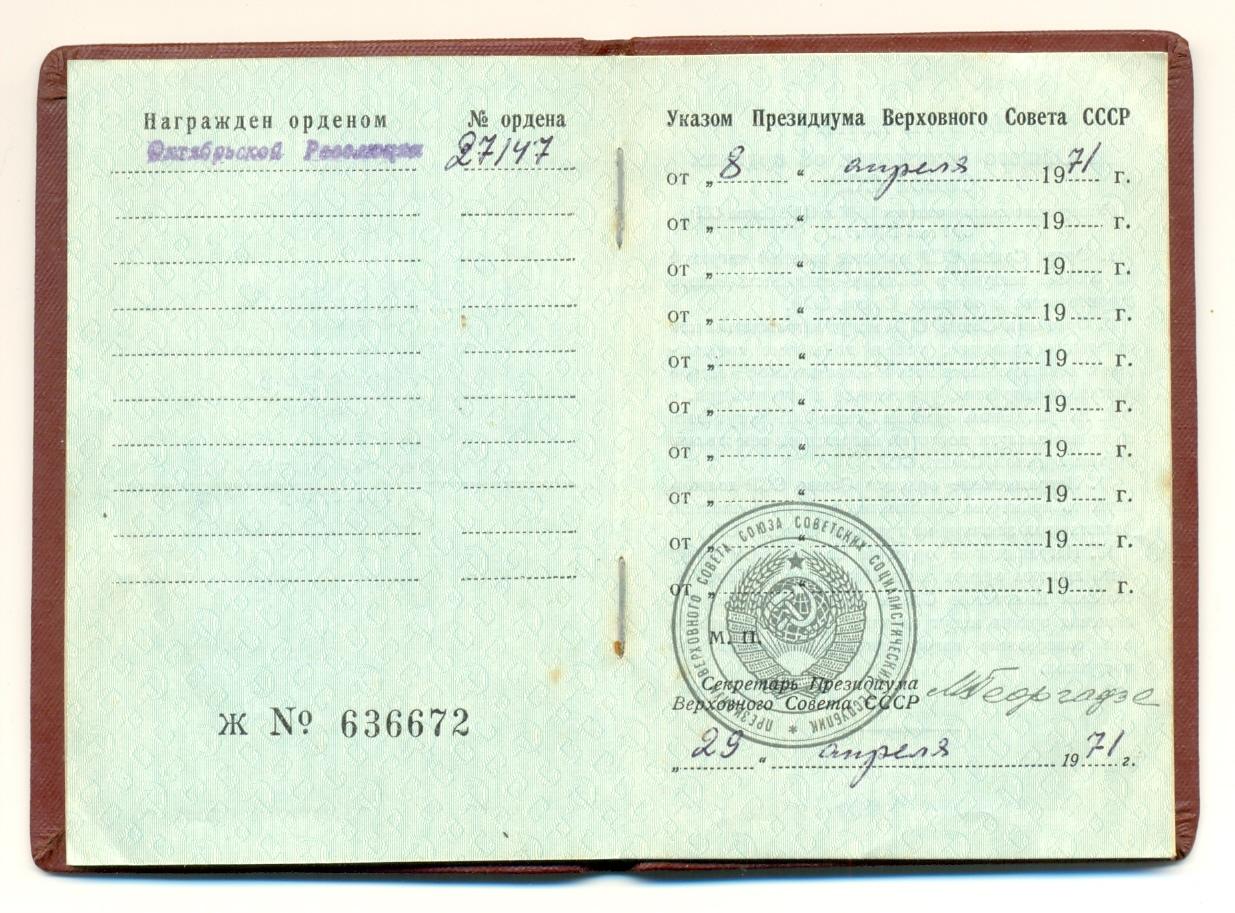 Награжден орденом № ордена
Октябрьской Революции 27147
Ж № 636672
Указом Президиума Верховного Совета СССР
от „ 8 “ апреля 1971 г.
от „ “ 19 г.
от „ “ 19 г.
от „ “ 19 г.
от „ “ 19 г.
от „ “ 19 г.
от „ “ 19 г.
от „ “ 19 г.
от „ “ 19 г.
от „ “ 19 г.
М. П.
ПРЕЗИДИУМ ВЕРХОВНОГО СОВЕТА СОЮЗА СОВЕТСКИХ СОЦИАЛИСТИЧЕСКИХ РЕСПУБЛИК *
Секретарь Президиума
Верховного Совета СССР МГеоргадзе
„ 29 “ апреля 1971 г.